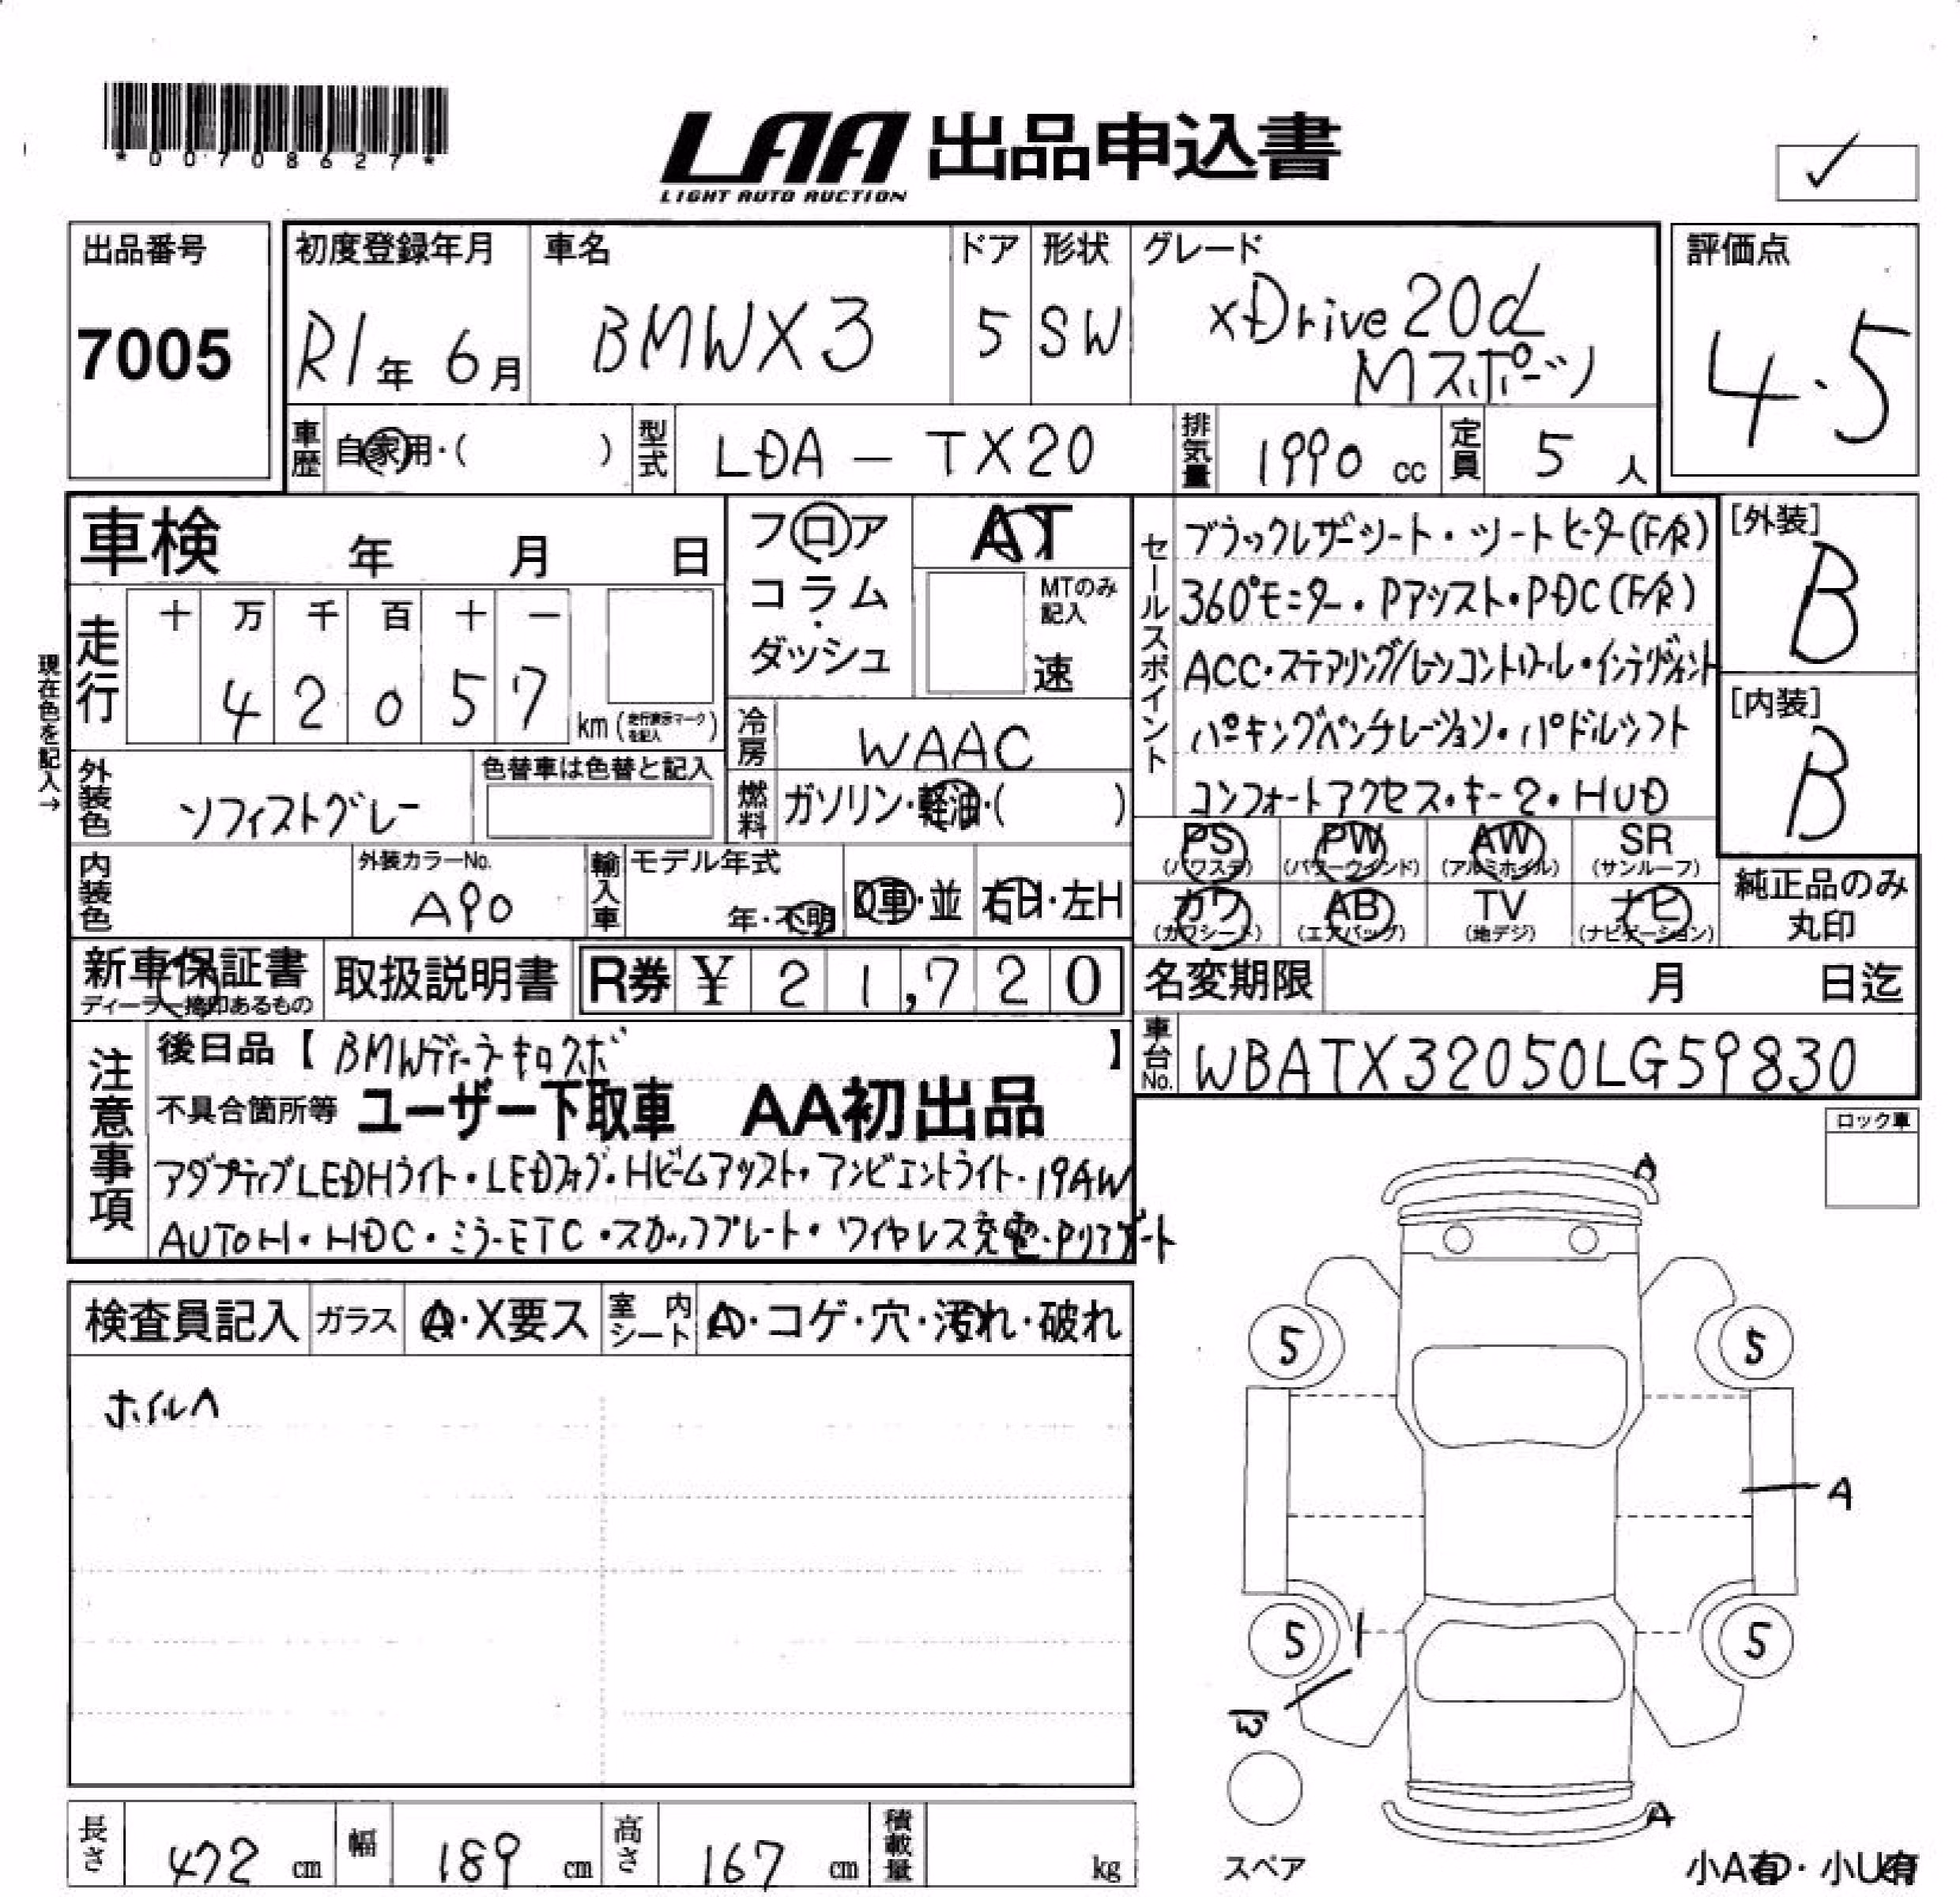 *00708627*
LAA 出品申込書
LIGHT AUTO AUCTION
✓
出品番号
7005
初度登録年月
R1年 6月
車名
BMWX3
ドア
5
形状
SW
グレード
xDrive20d
Mスポーツ
評価点
4.5
車歴
自家用・( )
型式
LDA - TX20
排気量
1990 cc
定員
5 人
車検 年 月 日
フロア
コラム
・
ダッシュ
AT
MTのみ
記入
速
セールスポイント
ブラックレザーシート・シートヒーター(F/R)
360°モニター・Pアシスト・PDC(F/R)
ACC・ステアリング/レーンコントロール・インテリジェント
パーキングベンチレーション・パドルシフト
コンフォートアクセス・キー2・HUD
[外装]
B
[内装]
B
現在色を記入→
走行
十 万 千 百 十 一
4 2 0 5 7
km (走行表示マークを記入)
冷房
WAAC
燃料
ガソリン・軽油・( )
外装色
ソフィストグレー
色替車は色替と記入
内装色
外装カラーNo.
A90
輸入車
モデル年式
年・不明
D車・並
右H・左H
PS
(パワステ)
PW
(パワーウインド)
AW
(アルミホイル)
SR
(サンルーフ)
カワ
(カワシート)
AB
(エアバッグ)
TV
(地デジ)
ナビ
(ナビゲーション)
純正品のみ
丸印
新車保証書
ディーラー捺印あるもの
取扱説明書
R券 ¥ 21,720
名変期限 月 日迄
車台No.
WBATX32050LG59830
注意事項
後日品【 BMWディーラーキロスポ 】
不具合箇所等 ユーザー下取車 AA初出品
アダプティブLEDHライト・LEDフォグ・Hビームアシスト・アンビエントライト・19AW
AUTOH・HDC・ミラーETC・スカッフプレート・ワイヤレス充電・Pリアゲート
ロック車
検査員記入
ガラス
A・X要ス
室内シート
A・コゲ・穴・汚れ・破れ
ホイルA
A
5
5
A
5
5
A
スペア
小A有・小U有
長さ
472 cm
幅
189 cm
高さ
167 cm
積載量
kg